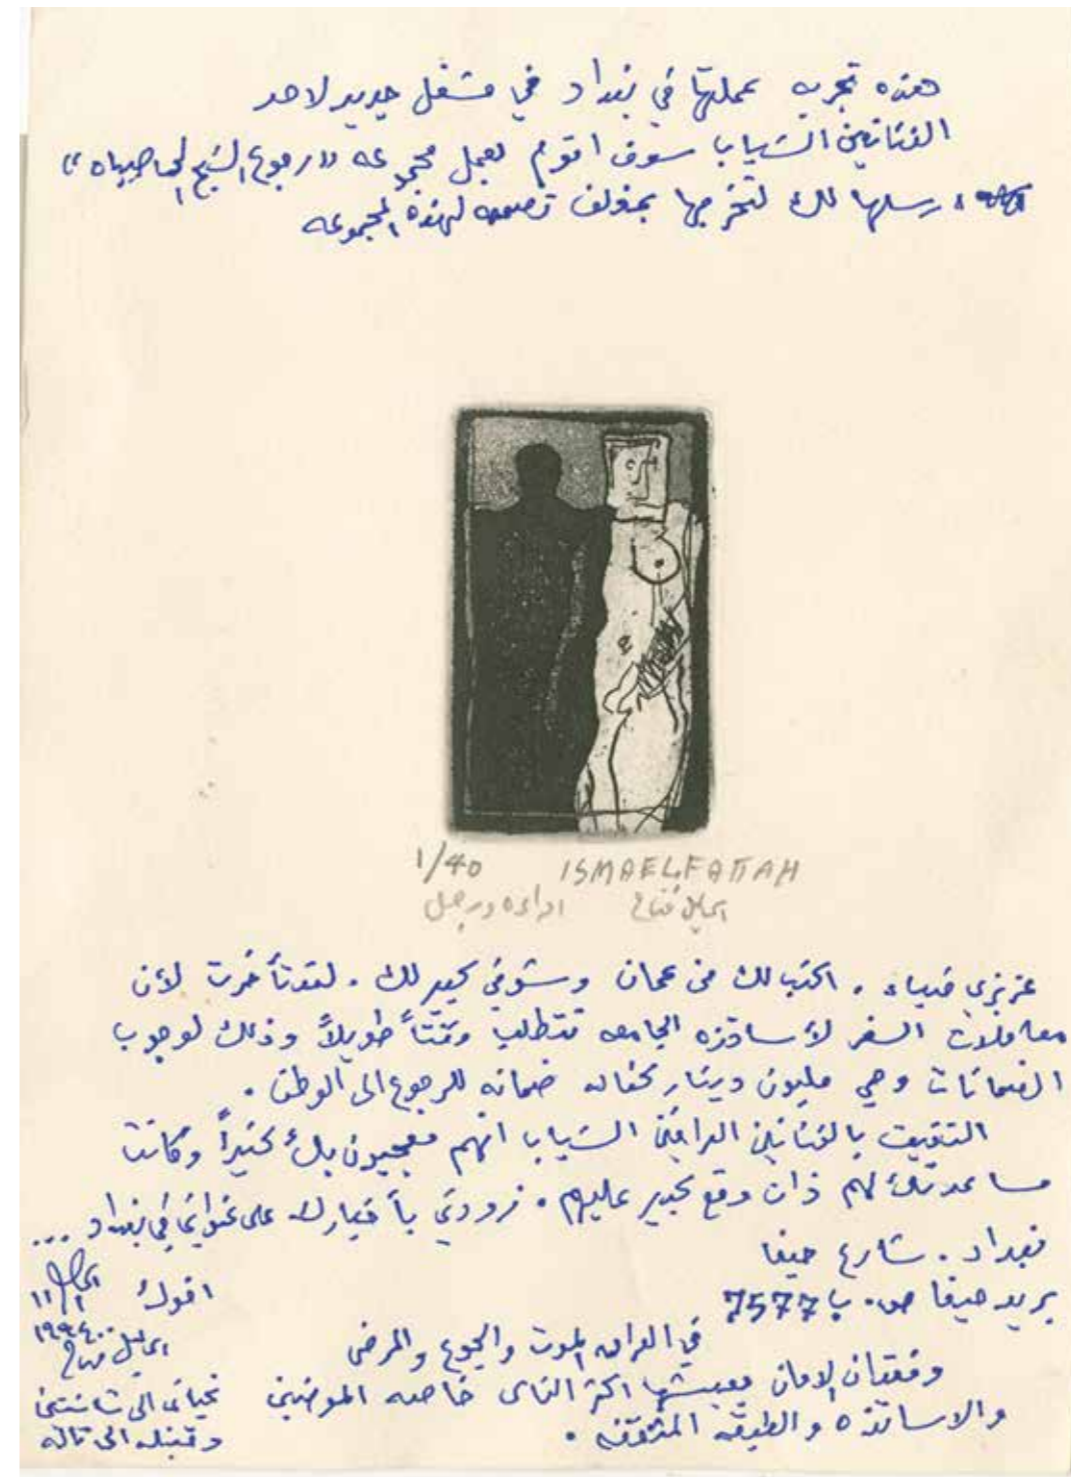 هذه تجربه عملتها في بغداد في مشغل جديد لاحد
الفنانين الشباب سوف اقوم بعمل مجموعه "رجوع الشيخ الى صباه"
ارسلها لك لتخرجها بمغلف تصممه لهذه المجموعه
1/40 ISMAEL FATTAH
امرأه ورجل اسماعيل فتاح
عزيزي ضياء . اكتب لك من عمان وشوقي كبير لك . لقد تأخرت لأن
معاملات السفر لأساتذه الجامعه تتطلب وقتاً طويلاً وذلك لوجوب
الضمانات وهي مليون دينار كفاله ضمانه للرجوع الى الوطن .
التقيت بالفنانين العراقين الشباب انهم معجبون بك كثيراً وكانت
مساعدتك لهم ذات وقع كبير عليهم . زودني بأخبارك على عنواني في بغداد ...
بغداد . شارع حيفا
بريد حيفا ص. ب 7577
اخوك
اسماعيل فتاح
في العراق الموت والجوع والمرض
وفقدان الامان يعيشها اكثر الناس خاصه الموظفين
والاساتذه والطبقه المثقفه .
تحياتي الى
وقبله الى تاله